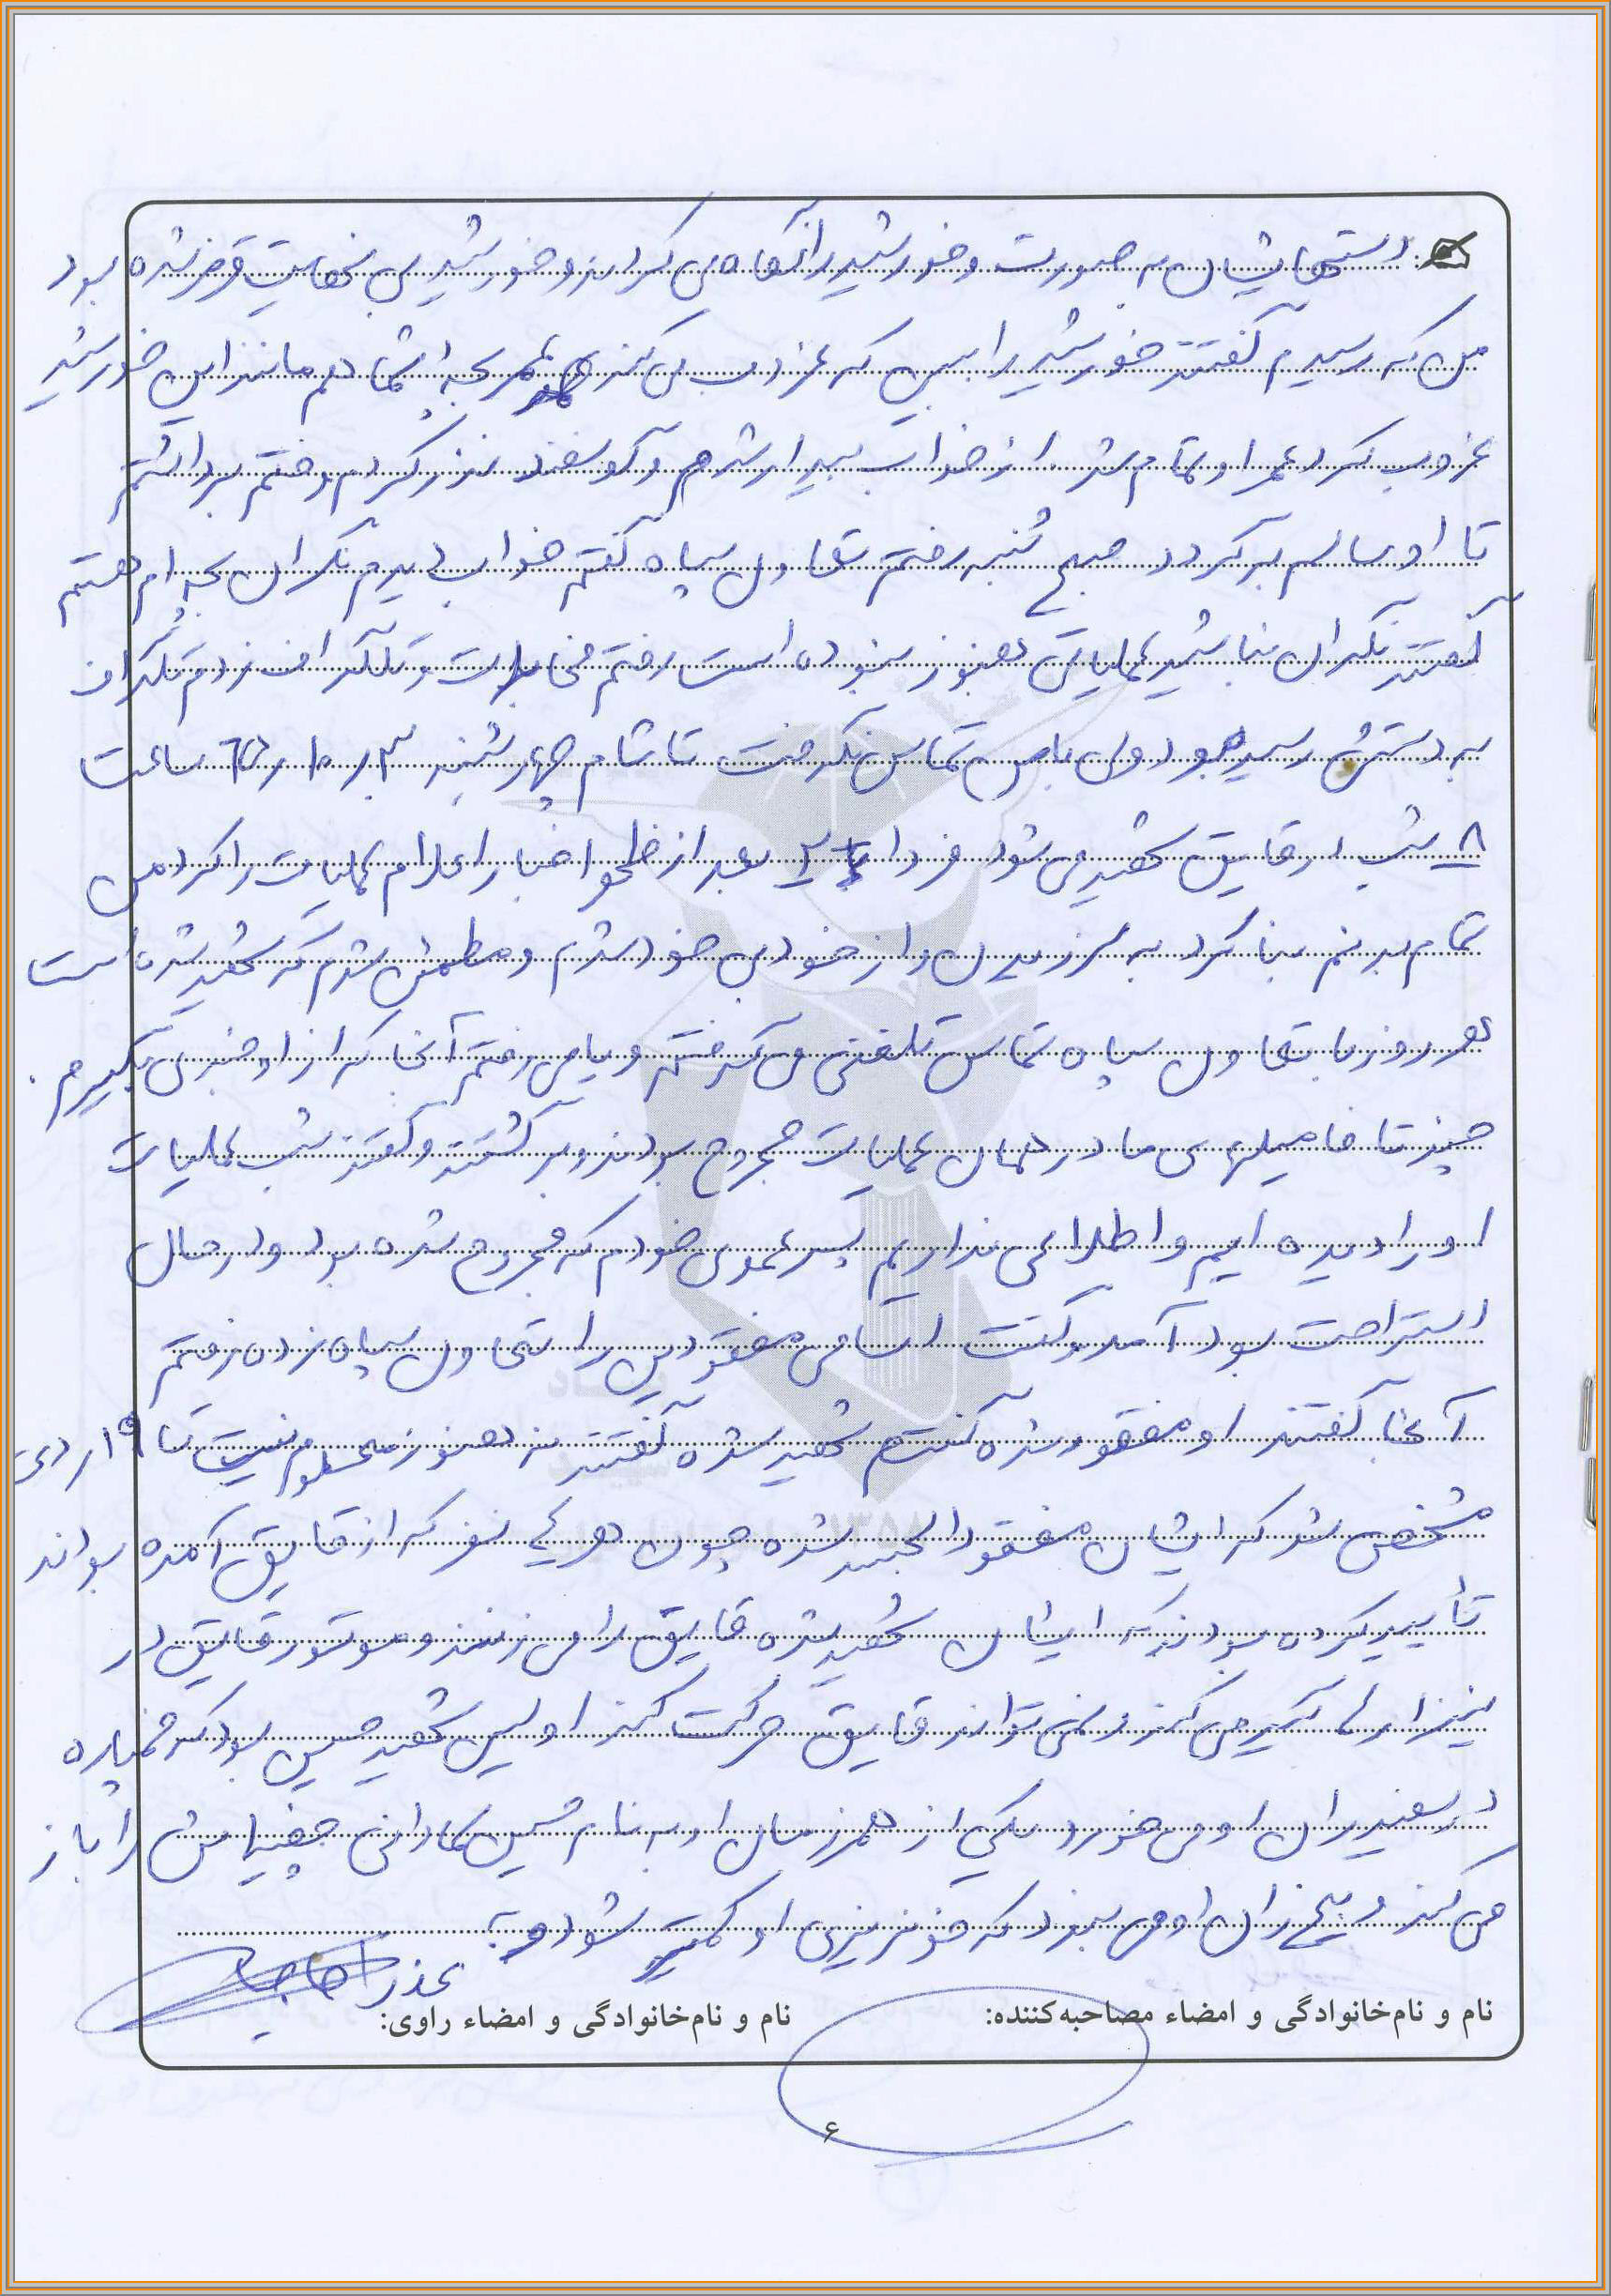 دستهایشان به صورت و خورشید را نگاه می کردند و خورشید بی نهایت قرمز شده بود
من که رسیدم گفتند خورشید را ببین که غروب می کند عمر بچه شما هم مانند این خورشید
غروب کرد عمر او تمام شد. از خواب بیدار شدم و گوسفند نذر کردم و ختم برداشتم
تا او سالم برگردد صبح شنبه رفتم تعاون سپاه گفتم خواب دیدم نگران بچه ام هستم
گفتند نگران نباشید عملیاتی هنوز نبوده است رفتم مخابرات و تلگراف زدم تلگراف
به دستش رسیده بود ولی با من تماس نگرفت تا شام چهارشنبه ۳ر۱۰ر۶۵ ساعت
۸ شب در قایق شهید می شود فردا ۲ بعد از ظهر اخبار اعلام عملیات را کرد من
تمام بدنم بنا کرد به لرزیدن و از خود بی خود شدم و مطمئن شدم که شهید شده است
هر روز با تعاون سپاه تماس تلفنی می گرفتم و یا می رفتم آنجا که از او خبری بگیرم.
چند تا فامیلهای ما در همان عملیات مجروح بودند و برگشتند و گفتند شب عملیات
او را دیده ایم و اطلاعی نداریم پسر عموی خودم که مجروح شده بود و در حال
استراحت بود آمد و گفت اسامی مفقودین را تعاون سپاه زده رفتم
آنجا گفتند او مفقود شده گفتم شهید شده گفتند نه هنوز معلوم نیست تا ۱۹ر دی
مشخص شد که ایشان مفقود الجسد شده چون هر ۴ نفر که از قایق آمده بودند
تأیید کرده بودند که ایشان شهید شده قایق را می زنند و موتور قایق در
نیزارها گیر می کند و نمی تواند قایق حرکت کند اولین شهید حسین بود که خمپاره
در سفید ران او می خورد یکی از همرزمان او به نام حسین کامرانی چفیه اش را باز
می کند و بیخ ران او می بندد که خونریزی او کمتر شود و
عذرا
نام و نام‌خانوادگی و امضاء مصاحبه‌کننده:
نام و نام‌خانوادگی و امضاء راوی:
۶